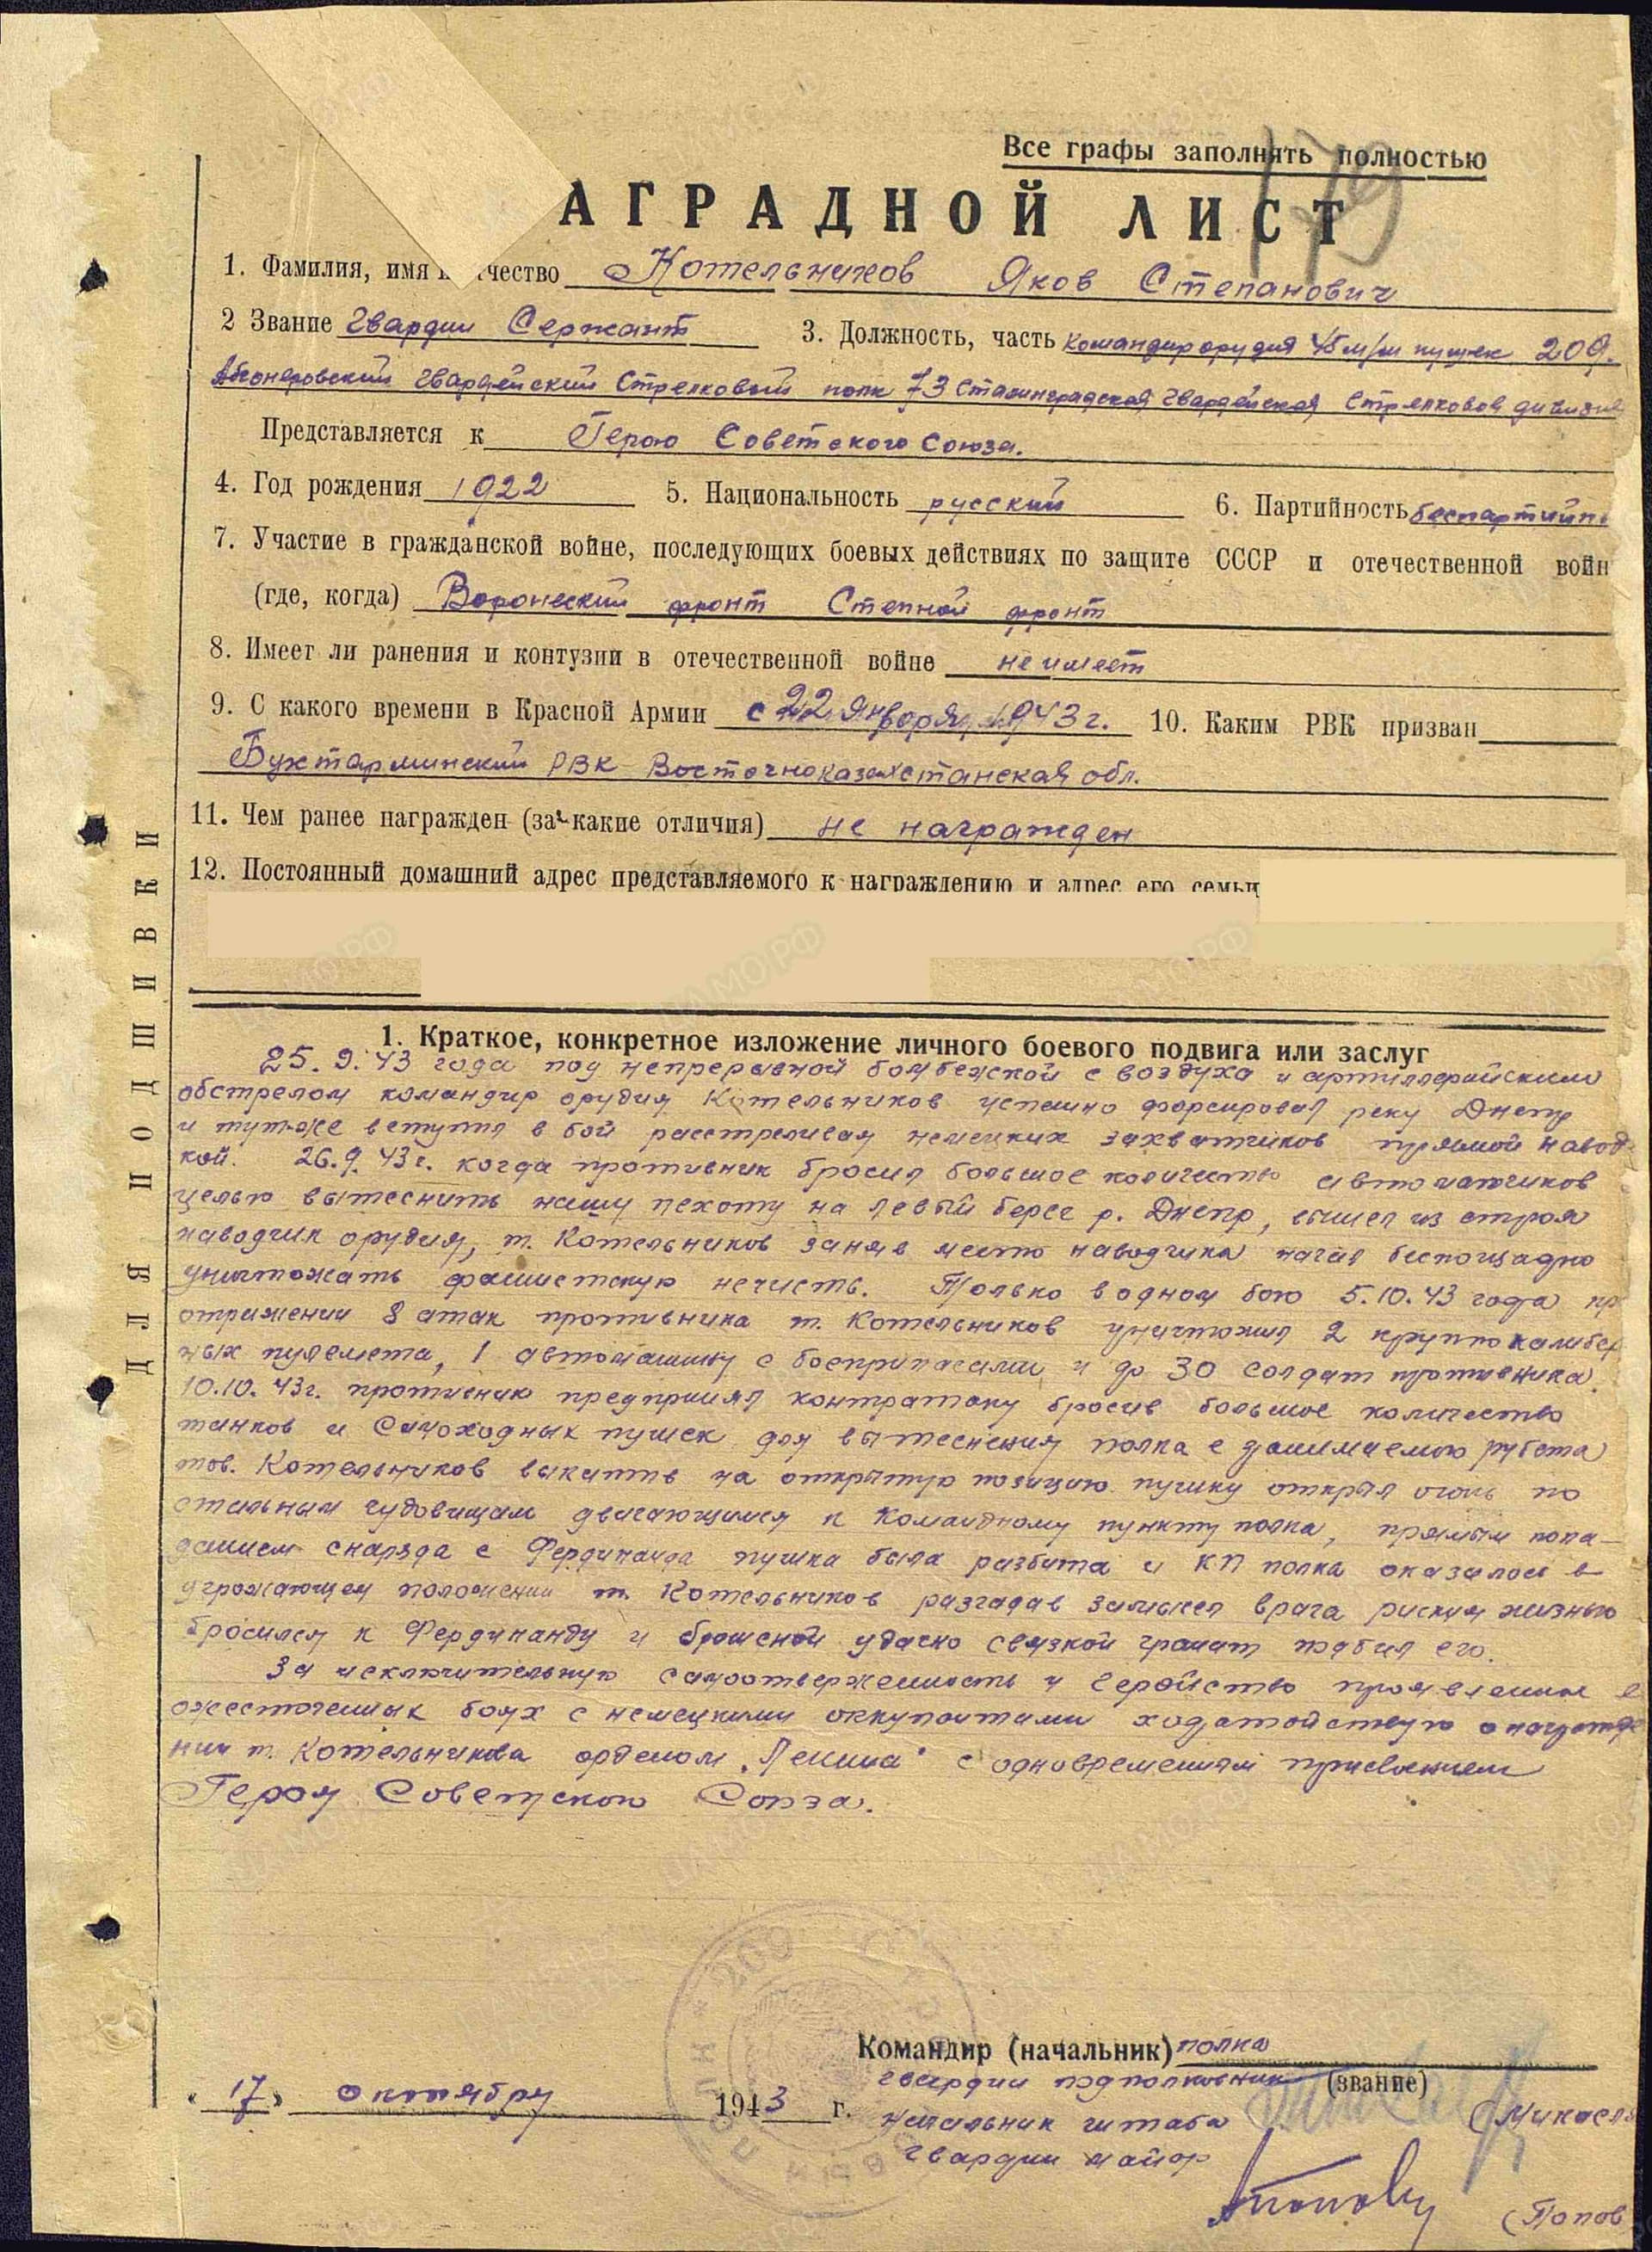 179
Все графы заполнять полностью
АГРАДНОЙ ЛИСТ
1. Фамилия, имя и чество Котельников Яков Степанович
2 Звание Гвардии Сержант 3. Должность, часть командир орудия 45 м/м пушек 209.
Абгонеровский Гвардейский Стрелковый полк 73 Сталинградская Гвардейская Стрелковая дивизия
Представляется к Герою Советского Союза.
4. Год рождения 1922 5. Национальность русский 6. Партийность беспартийн
7. Участие в гражданской войне, последующих боевых действиях по защите СССР и отечественной войн
(где, когда) Воронеский фронт Степной фронт
8. Имеет ли ранения и контузии в отечественной войне не имеет
9. С какого времени в Красной Армии с 22 января 1943 г. 10. Каким РВК призван
Бухтарминский РВК Восточноказахстанская обл.
11. Чем ранее награжден (за какие отличия) не награжден
12. Постоянный домашний адрес представляемого к награждению и адрес его семьи
ДЛЯ ПОДШИВКИ
1. Краткое, конкретное изложение личного боевого подвига или заслуг
25.9.43 года под непрерывной бомбежкой с воздуха и артиллерийским
обстрелом командир орудия Котельников успешно форсировал реку Днепр
и тут-же вступил в бой расстреливая немецких захватчиков прямой навод-
кой. 26.9.43г. когда противник бросил большое количество автоматчиков
целью вытеснить нашу пехоту на левый берег р. Днепр, вышел из строя
наводчик орудия, т. Котельников заняв место наводчика начал беспощадно
уничтожать фашистскую нечисть. Только в одном бою 5.10.43 года пр
отражении 8 атак противника т. Котельников уничтожил 2 крупнокалибер
ных пулемета, 1 автомашину с боеприпасами и до 30 солдат противника.
10.10.43г. противник предпринял контратаку бросив большое количество
танков и Самоходных пушек для вытеснения полка с занимаемого рубежа
тов. Котельников выкатив на открытую позицию пушку открыл огонь по
стальным чудовищам двигающимся к Командному пункту полка, прямым попа-
данием снаряда с Фердинанда пушка была разбита и КП полка оказалось в
угрожающем положении т. Котельников разгадав замысел врага рискуя жизнью
бросился к Фердинанду и брошенной удачно связкой гранат подбил его.
За исключительную самоотверженность и геройство проявленные в
ожесточенных боях с немецкими оккупантами ходатайствую о награжде
нии т. Котельникова орденом „Ленина" с одновременным присвоением
Героя Советского Союза.
Командир (начальник) полка
гвардии подполковник (звание)
« 17 » октября 1943 г.
начальник штаба
гвардии майор
(Попов